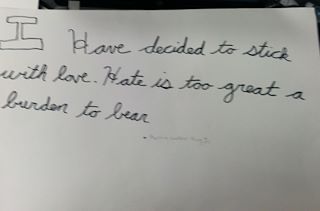 I Have decided to stick
with love. Hate is too great a
burden to bear